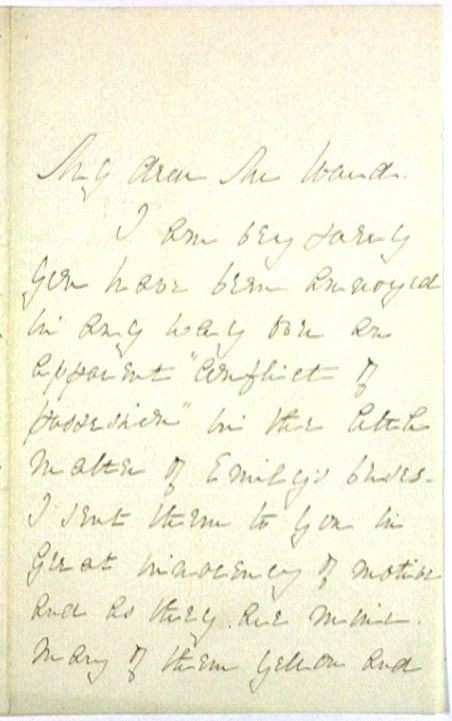 My dear Mr Ward.
I am very sorry
you have been annoyed
in any way over an
apparent "Conflict of
possession" in the little
matter of Emily's verses.
I sent them to you in
great innocency of motive
and as they are mine.
Many of them yellow and